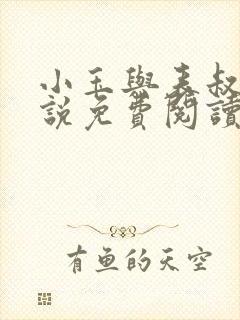 小玉與表叔
說免費閱讀
有魚的天空